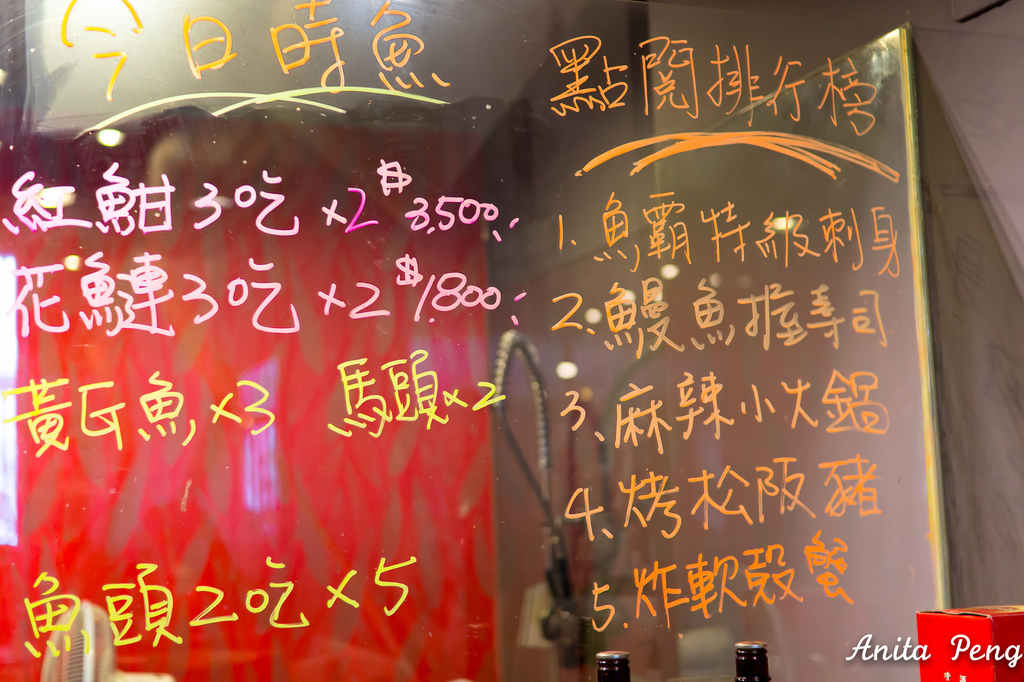 今日時魚
紅魽3吃 x2 $3,500.
花鰱3吃 x2 $1,800.
黃厶魚x3 馬頭x2
魚頭2吃x5
點閱排行榜
1. 魚霸特級刺身
2. 鰻魚握壽司
3、麻辣小火鍋
4、烤松阪豬
5. 炸軟殼蟹
Anita Peng